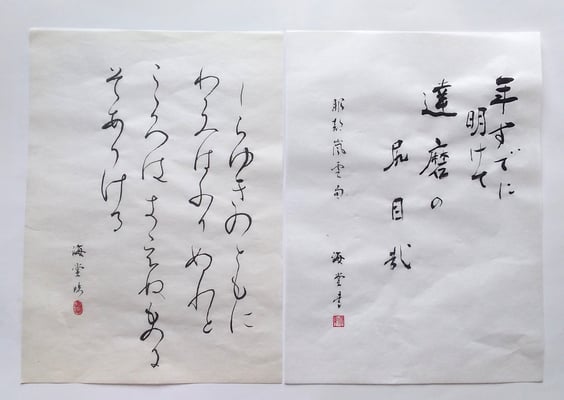 年すでに
明けて
達磨の
尻目哉
服部嵐雪句
海堂書
しらゆきのともに
わかみはふりぬれと
こゝろはきえぬものに
そありける
海堂